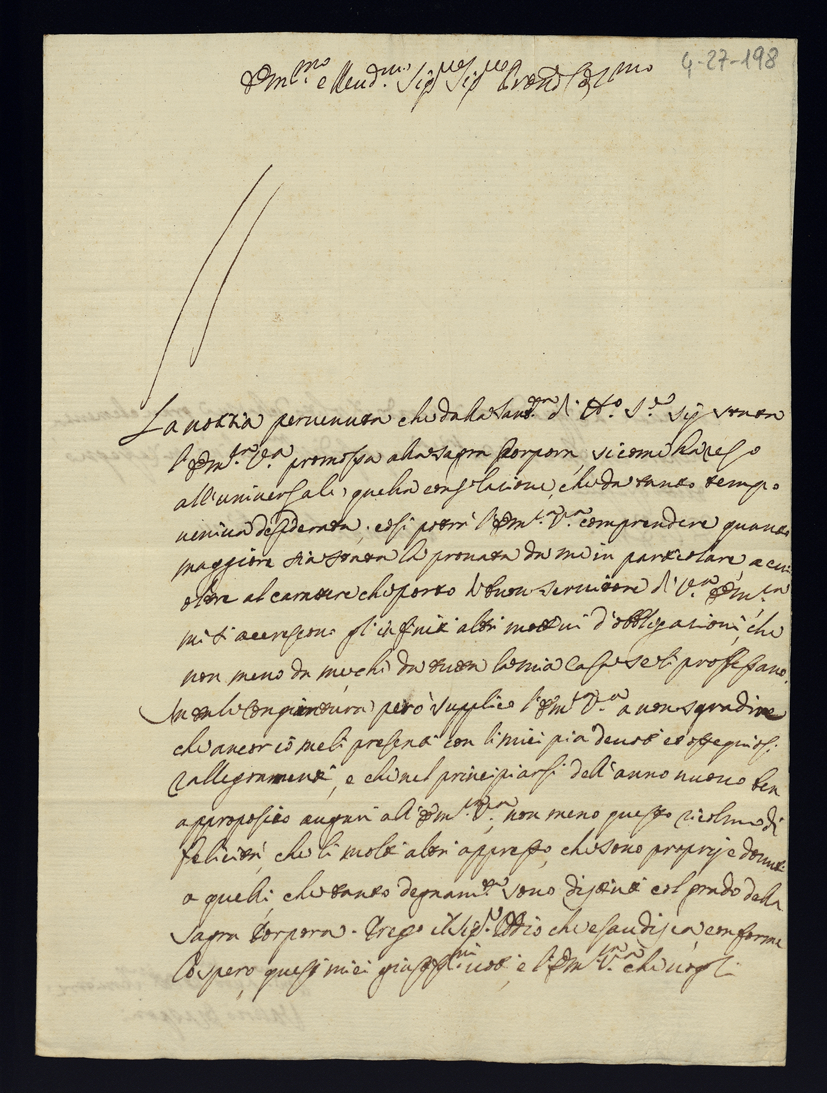 4-27-198
Em.mo e Rend.mo Sig.re Sig.re Prone Col.mo
La notizia pervenuta che dalla Sant.tà di N.ro S.re sij stata
l'Em.za V.ra promossa alla sagra Porpora, sicome ha reso
all'universale quella consolatione, che da tanto tempo
veniva desiderata; così potrà l'Em.za V.ra comprendere quanto
maggiore sia stata la provata da me in particolare, a cui
oltre al carattere che porto di buon servitore di V.ra Em.za
mi si accrescono gl'infiniti altri mottivi d'obbligationi, che
non meno da me, che da tutta la mia Casa se li professano.
In tale congiontura però supplico l'Em.za V.ra a non sgradire
che ancor io me li presenti con li miei più devoti et ossequiosi
rallegramenti, e che nel principiarsi dell'anno nuovo ben
approposito auguri all'Em.za V.ra, non meno questo ricolmo di
felicità, che li molti altri appresso, che sono proprij e dovuti
a quelli, che tanto degnam.te sono distinti col grado della
Sagra Porpora. Prego il Sig.re Iddio che esaudisca conforme
lo spero, questi miei giust.mi voti, e l'Em.za V.ra che vogli